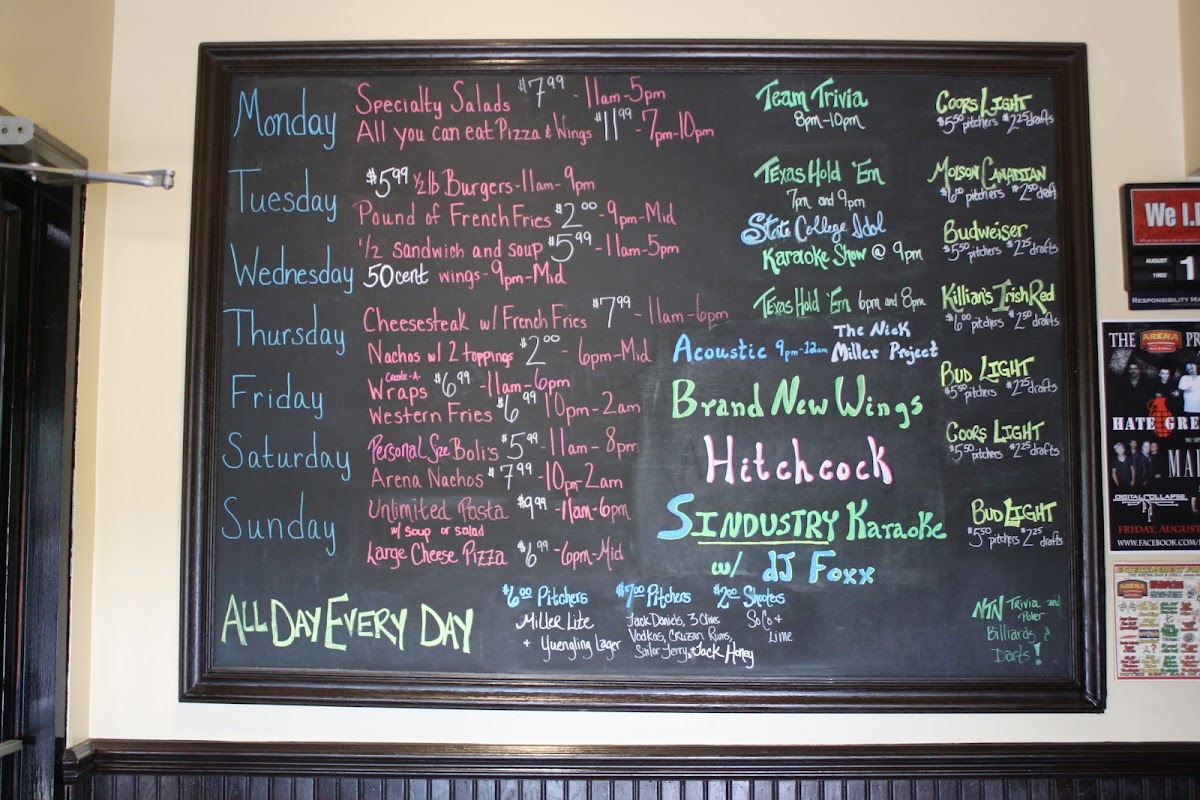 Monday
Specialty Salads $7.99 - 11am-5pm
All you can eat Pizza & Wings $11.99 - 7pm-10pm
Team Trivia
8pm-10pm
Coors Light
$5.50 pitchers $2.25 drafts
Tuesday
$5.99 1/2 lb Burgers - 11am - 9pm
Pound of French Fries $2.00 - 9pm-Mid
Texas Hold 'Em
7pm and 9pm
Molson Canadian
$6.00 pitchers $2.50 draft
Wednesday
1/2 sandwich and soup $5.99 - 11am-5pm
50cent wings - 9pm-Mid
State College Idol
Karaoke Show @ 9pm
Budweiser
$5.50 pitchers $2.25 drafts
Thursday
Cheesesteak w/ French Fries $7.99 - 11am-6pm
Nachos w/ 2 toppings $2.00 - 6pm-Mid
Texas Hold 'Em 6pm and 8pm
Acoustic 9pm-12am
The Nick
Miller Project
Killian's Irish Red
$6.00 pitchers $2.50 drafts
Friday
Create-A-
Wraps $6.99 - 11am-6pm
Western Fries $6.99 10pm-2am
Brand New Wings
Bud Light
$5.50 pitchers $2.25 drafts
Saturday
Personal Size Boli's $5.99 - 11am - 8pm
Arena Nachos $7.99 - 10pm-2am
Hitchcock
Coors Light
$5.50 pitchers $2.25 drafts
Sunday
Unlimited Pasta $9.99 - 11am-6pm
w/ soup or salad
Large Cheese Pizza $6.99 - 6pm-Mid
Sindustry Karaoke
w/ dJ Foxx
Bud Light
$5.50 pitchers $2.25 drafts
All Day Every Day
$6.00 Pitchers
Miller Lite
+ Yuengling Lager
$7.00 Pitchers
Jack Daniels, 3 Olives
Vodkas, Cruzan Rums,
Sailor Jerry, & Jack Honey
$2.00 Shooters
SoCo &
Lime
NTN Trivia and
Poker
Billiards &
Darts!
We I.
AUGUST
1992
1
RESPONSIBILITY
THE ARENA
HATE GRE
MA
DIGITAL COLLAPSE
FRIDAY, AUGUS
WWW.FACEBOOK.COM/
ARENA